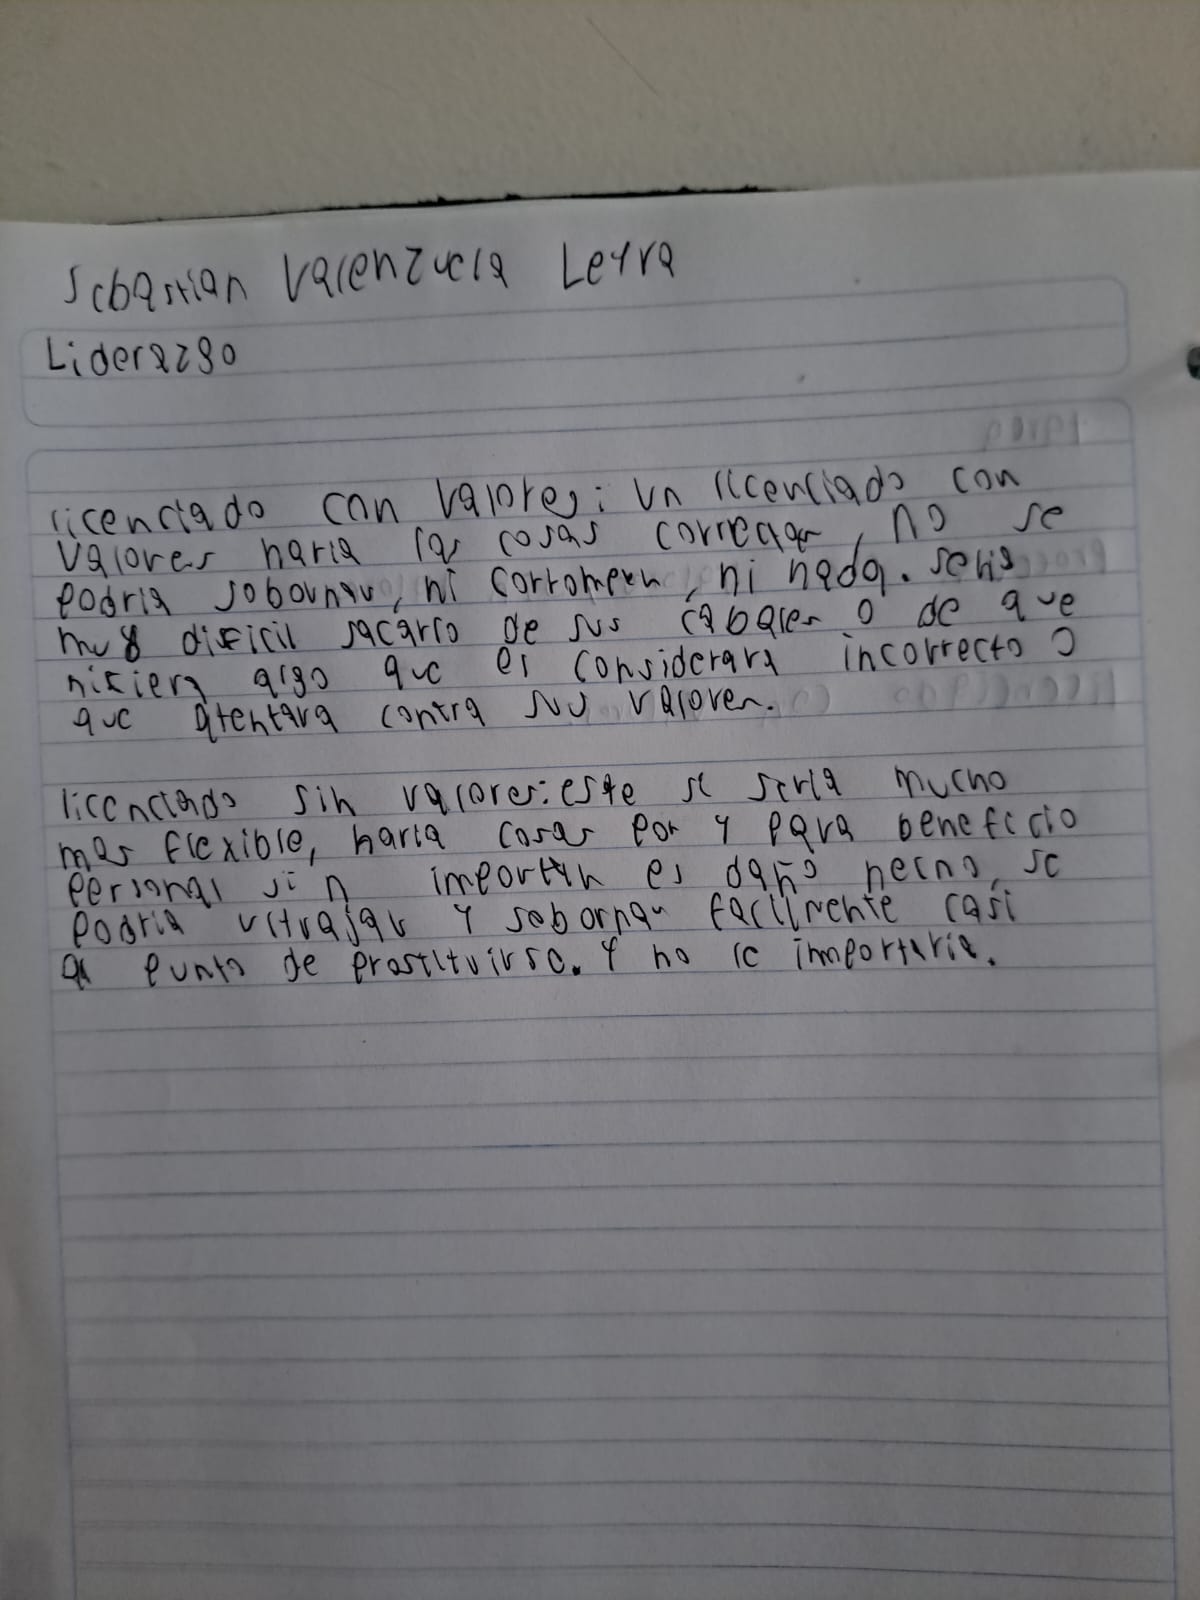 Sebastian Valenzuela Leyra
Liderazgo
licenciado con valores: un licenciado con
valores haria las cosas correctas, no se
podria sobornar, ni corromper, ni nada. seria
muy dificil sacarlo de sus cabales o de que
hiciera algo que el considerara incorrecto o
que atentara contra sus valores.
licenciado sin valores: este si seria mucho
mas flexible, haria cosas por y para beneficio
personal sin importar el daño hecho, se
podria ultrajar y sobornar facilmente casi
al punto de prostituirse. Y no le importaria.